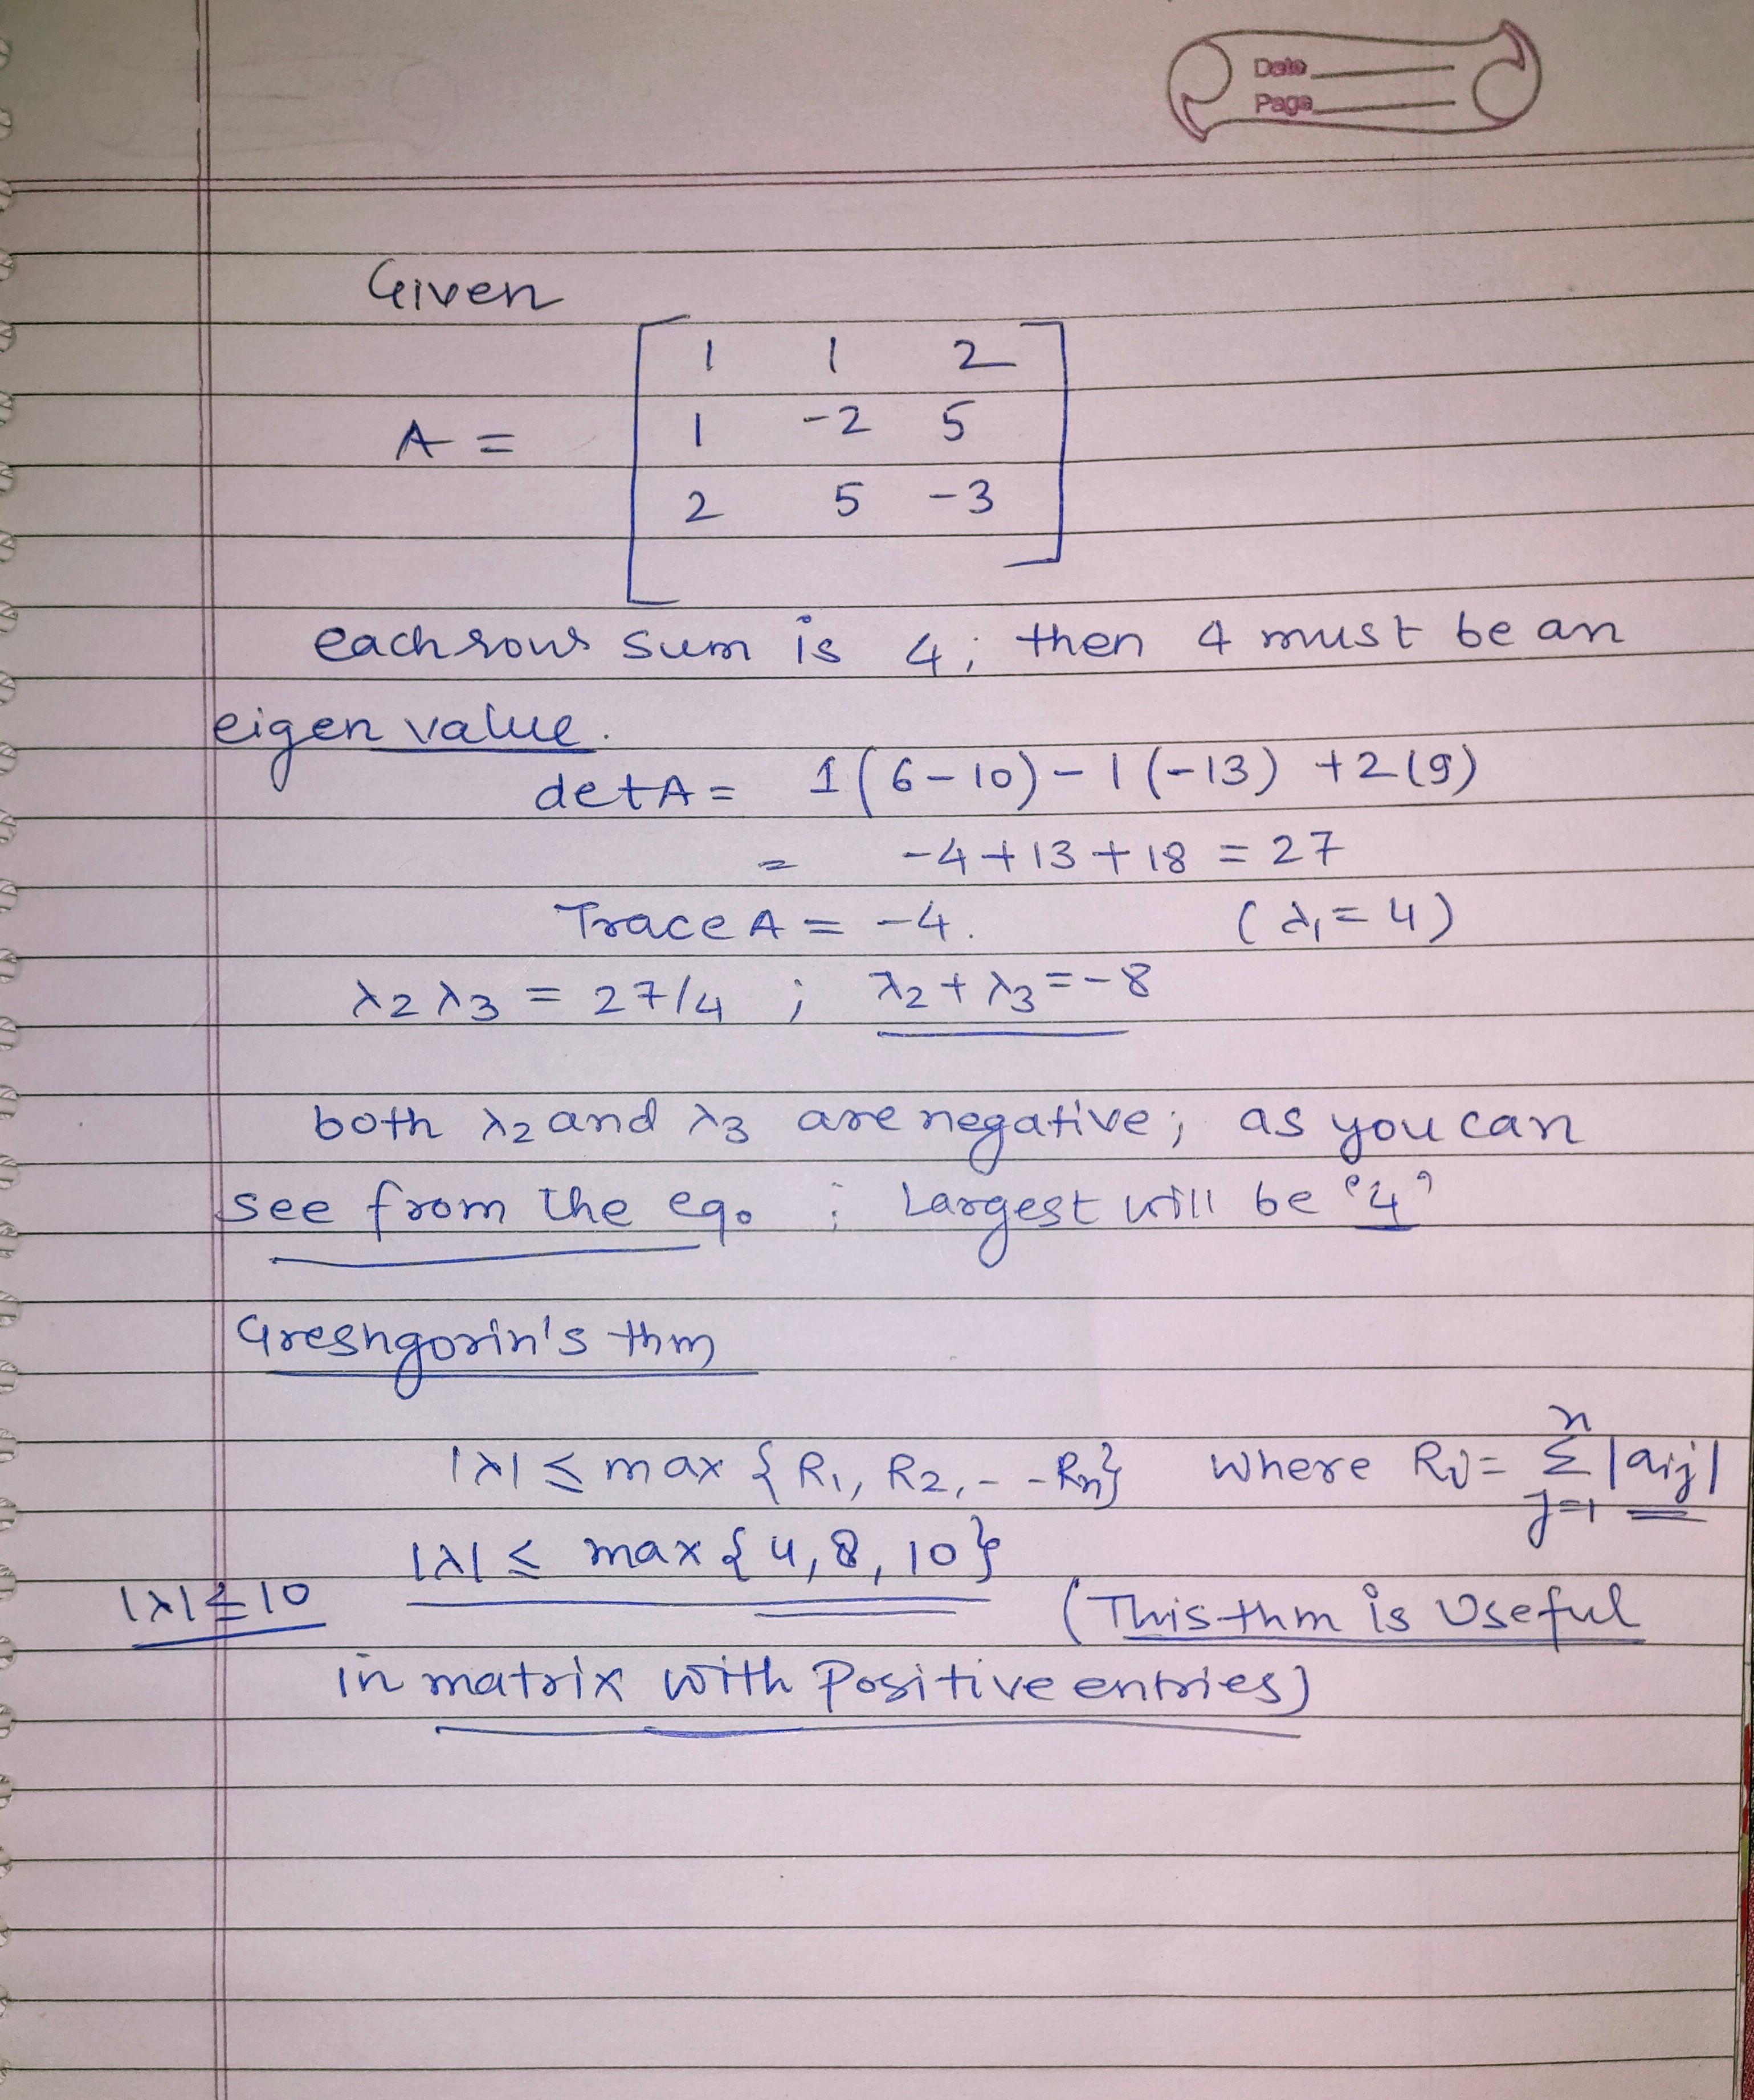 Date
Page
Given
A = [ 1 1 2
1 -2 5
2 5 -3 ]
each row sum is 4; then 4 must be an
eigen value.
det A = 1(6-10) - 1(-13) + 2(9)
= -4+13+18 = 27
Trace A = -4. (λ₁ = 4)
λ₂λ₃ = 27/4 ; λ₂+λ₃ = -8
both λ₂ and λ₃ are negative; as you can
see from the eq. ; Largest will be '4'
Greshgorin's thm
|λ| ≤ max {R₁, R₂, - - Rₙ} where Rᵢ = Σⁿⱼ₌₁ |aᵢⱼ|
|λ| ≤ max {4, 8, 10}
|λ| ≤ 10 (This thm is Useful
in matrix with Positive entries)